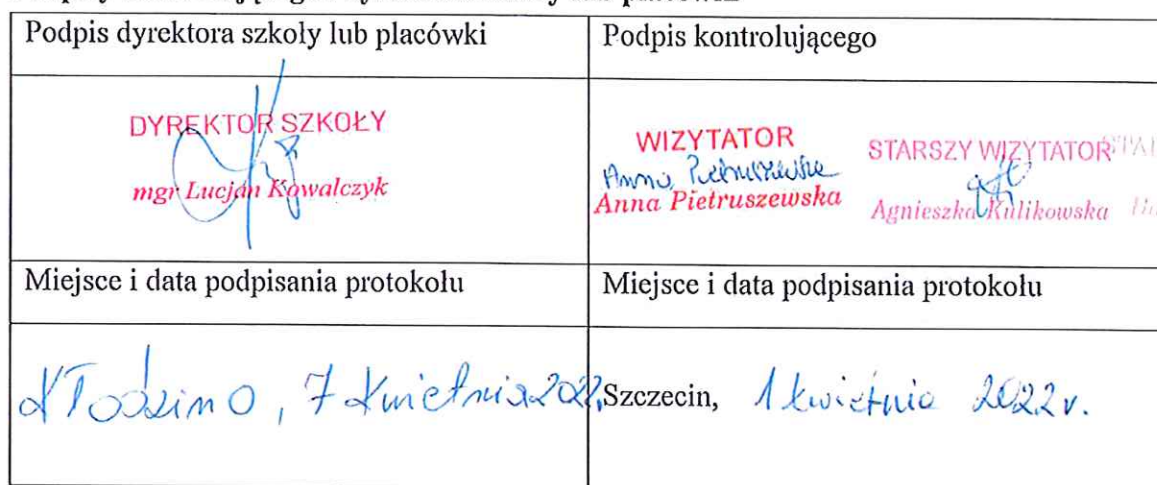 Podpis dyrektora szkoły lub placówki
Podpis kontrolującego
DYREKTOR SZKOŁY
mgr Lucjan Kowalczyk
WIZYTATOR
Anna Pietruszewska
Anna Pietruszewska
STARSZY WIZYTATOR
Agnieszka Kulikowska
Miejsce i data podpisania protokołu
Miejsce i data podpisania protokołu
Kłodzino, 7 kwietnia 2022
Szczecin, 1 kwietnia 2022 r.